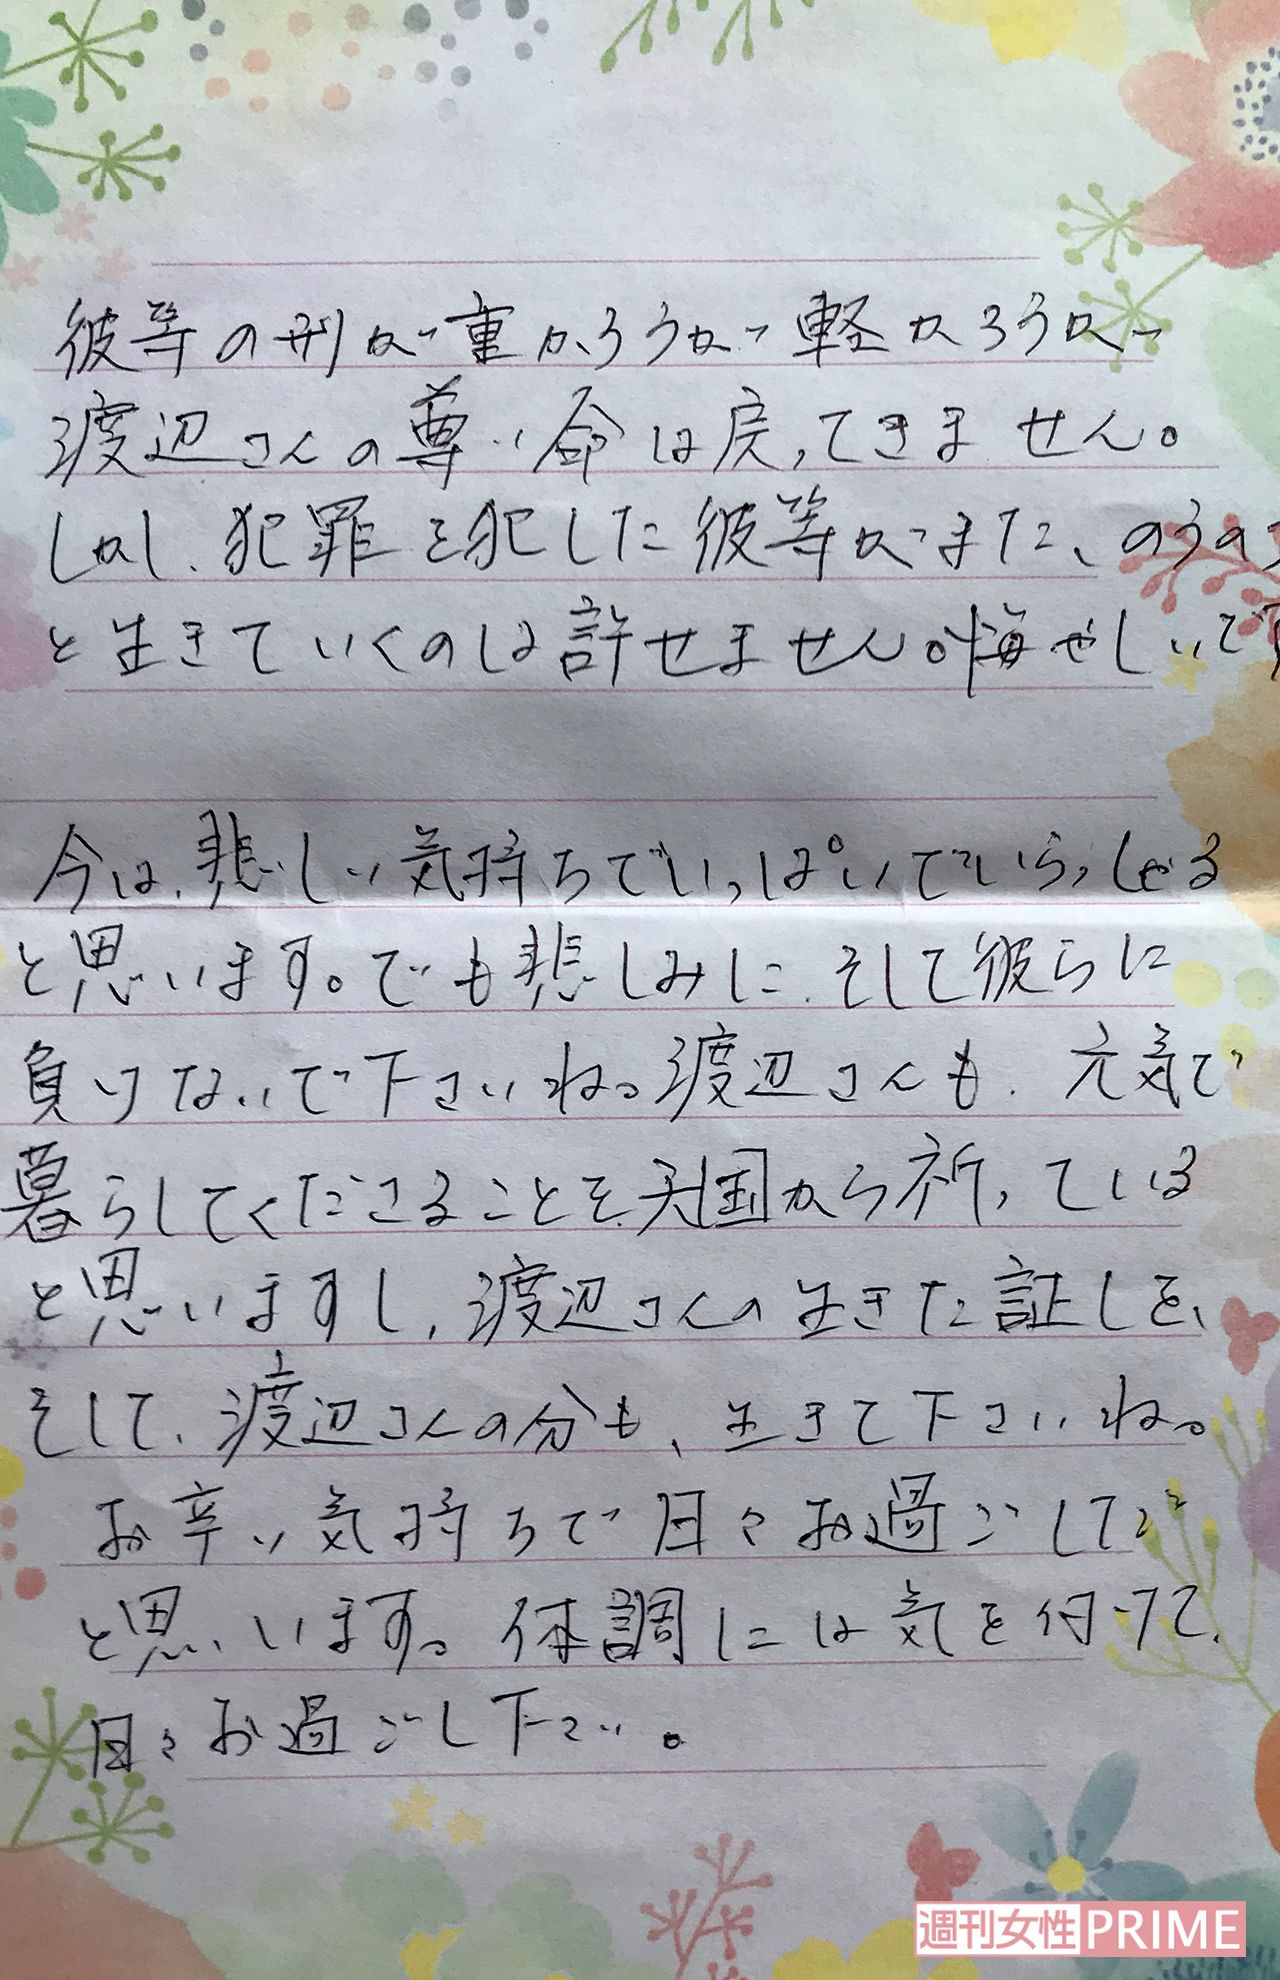 彼等の刑が重かろうが軽かろうが
渡辺さんの尊い命は戻ってきません。
しかし、犯罪を犯した彼等がまた、のうのう
と生きていくのは許せません。悔やしいです
今は、悲しい気持ちでいっぱいでいらっしゃる
と思います。でも悲しみに、そして彼らに
負けないで下さいね。渡辺さんも、元気で
暮らしてくださることを、天国から祈っている
と思いますし、渡辺さんの生きた証しを、
そして、渡辺さんの分も、生きて下さいね。
お辛い気持ちで日々お過ごしだ
と思います。体調には気を付けて、
日々お過ごし下さい。
週刊女性PRIME